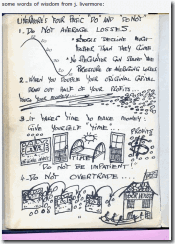 some words of wisdom from j. livermore:
LIVERMORE'S FOUR BASIC "DO" AND "DO NOT"
1. DO NOT AVERAGE LOSSES.
STOCKS DECLINE MUCH
FASTER THAN THEY CLIMB.
NO SPECULATOR CAN STAND THE
PRESSURE OF AVERAGING LOSSES
2. WHEN YOU DOUBLE YOUR ORIGINAL CAPITAL
DRAW OUT HALF OF YOUR PROFITS.
3. IT TAKES TIME TO MAKE MONEY.
GIVE YOURSELF TIME!
PROFITS
$
DO NOT BE IMPATIENT!
4. DO NOT OVERTRADE.